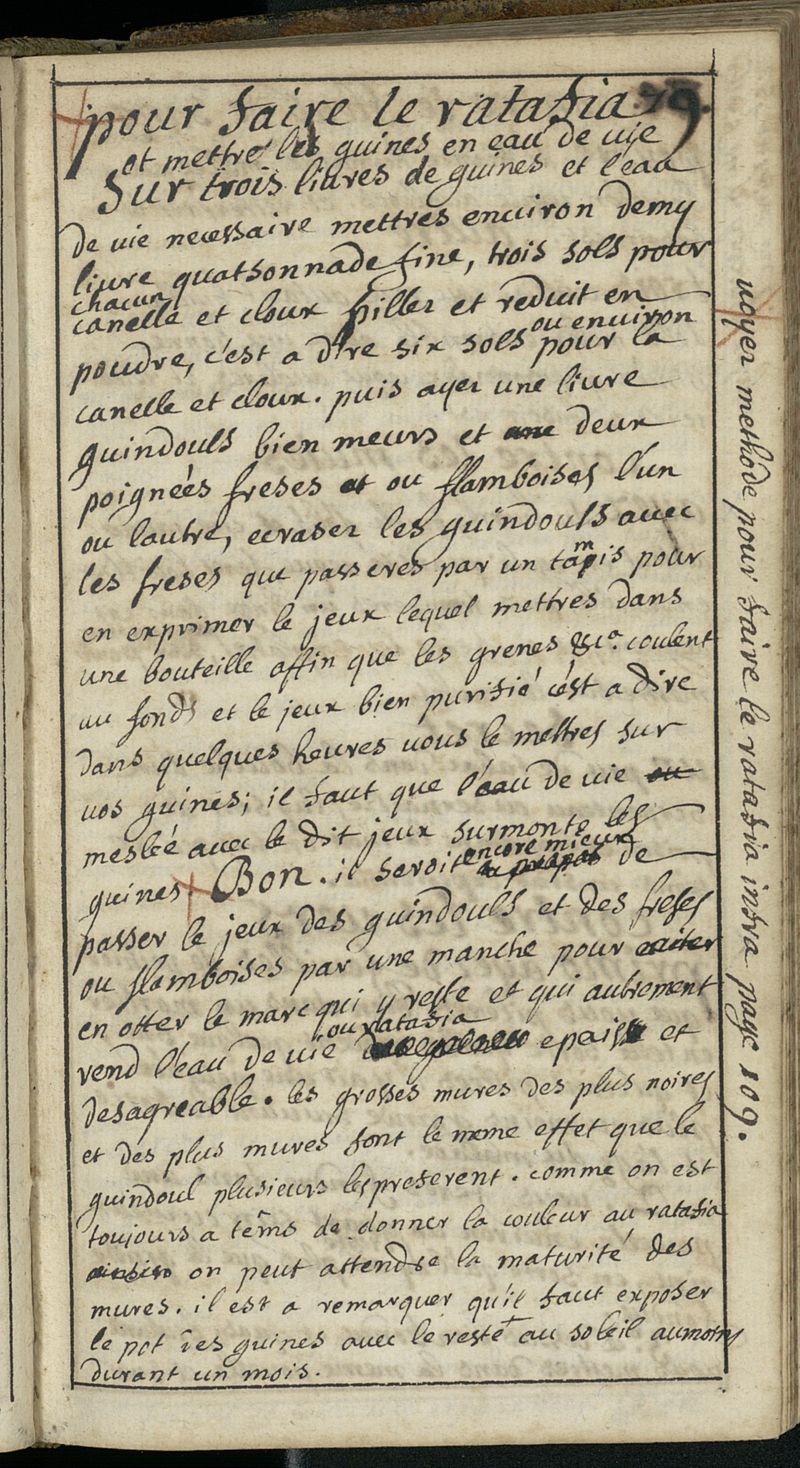 pour faire le ratafia 79.
et mettre les guines en eau de vie
Sur trois livres de guines et l'eau
de vie necessaire mettres environ demy
livre quatsonnade fine, trois sols pour
chacun
canelle et cloux piller et reduit en
poudre, c'est a dire six sols pour la
ou environ
canelle et cloux. puis ayer une livre
guindouls bien meurs et deux
poignées freses ou flamboises l'un
ou lautre, ecraser les guindouls avec
les freses que passeres par un tamis pour
en exprimer le jeux lequel mettres dans
une bouteille affin que les grenes &ca. coulent
au fonds et le jeux bien purifié c'est a dire
dans quelques heures vous le mettres sur
vos guines; il faut que l'eau de vie
meslée avec le dit jeux surmonte les
guines. Bon. il seroit encore mieux de
passer le jeux des guindouls et des freses
ou flamboises par une manche pour
en otter le marc qui y reste et qui autrement
rend l'eau de vie ou ratafia epais et
desagreable. les grosses mures des plus noires
et des plus mures font le meme effet que le
guindoul plusieurs les preferent. comme on est
toujours a tems de donner la couleur au ratafia
on peut attendre la maturité des
mures. il est a remarquer qu'il faut exposer
le pot des guines avec le reste au soleil aumoins
durant un mois.
voyer methode pour faire le ratafia infra page 109.